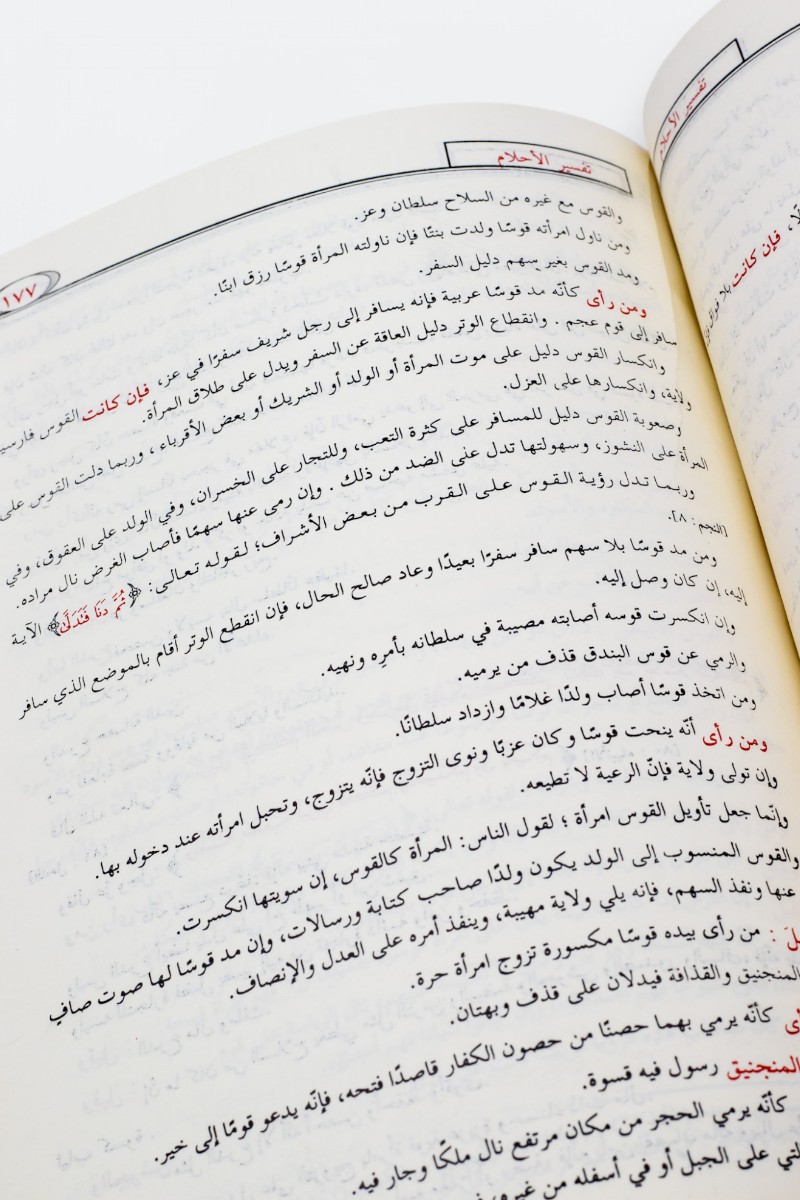 تفسير الأحلام
١٧٧
والقوس مع غيره من السلاح سلطان وعز.
ومن ناول امرأته قوسًا ولدت بنتًا فإن ناولته المرأة قوسًا رزق ابنًا.
ومد القوس بغير سهم دليل السفر.
ومن رأى كأنّه مد قوسًا عربية فإنه يسافر إلى رجل شريف سفرًا في عز، فإن كانت القوس
سافر إلى قوم عجم . وانقطاع الوتر دليل العاقة عن السفر ويدل على طلاق المرأة.
وانكسار القوس دليل على موت المرأة أو الولد أو الشريك أو بعض الأقرباء ، وربما دلت القوس على
ولاية، وانكسارها على العزل.
وصعوبة القوس دليل للمسافر على كثرة التعب، وللتجار على الخسران، وفي الولد على العقوق، وفي
المرأة على النشوز، وسهولتها تدل على الضد من ذلك . وإن رمى عنها سهمًا فأصاب الغرض نال مراده.
وربما تدل رؤية القوس على القرب من بعض الأشراف؛ لقوله تعالى: ﴿ثُمَّ دَنَا فَتَدَلَّى﴾ الآية
[النجم: ٨].
ومن مد قوسًا بلا سهم سافر سفرًا بعيدًا وعاد صالح الحال، فإن انقطع الوتر أقام بالموضع الذي سافر
إليه، إن كان وصل إليه.
وإن انكسرت قوسه أصابته مصيبة في سلطانه بأمرِه ونهيه.
والرمي عن قوس البندق قذف من يرميه.
ومن اتخذ قوسًا أصاب ولدًا غلامًا وازداد سلطانًا.
ومن رأى أنّه ينحت قوسًا وكان عزبًا ونوى التزوج فإنّه يتزوج، وتحبل امرأته عند دخوله بها.
وإن تولى ولاية فإنّ الرعية لا تطيعه.
وإنّما جعل تأويل القوس امرأة ؛ لقول الناس: المرأة كالقوس، إن سويتها انكسرت.
والقوس المنسوب إلى الولد يكون ولدًا صاحب كتابة ورسالات، وإن مد قوسًا لها صوت صافٍ
عنها ونفذ السهم، فإنه يلي ولاية مهيبة، وينفذ أمره على العدل والإنصاف.
: من رأى بيده قوسًا مكسورة تزوج امرأة حرة.
المنجنيق والقذافة فيدلان على قذف وبهتان.
كأنّه يرمي بهما حصنًا من حصون الكفار قاصدًا فتحه، فإنّه يدعو قومًا إلى خير.
المنجنيق رسول فيه قسوة.
كأنّه يرمي الحجر من مكان مرتفع نال ملكًا وجار فيه.
على الجبل أو في أسفله من غيره،
تفسير الأحلام
فإن كانت بلا